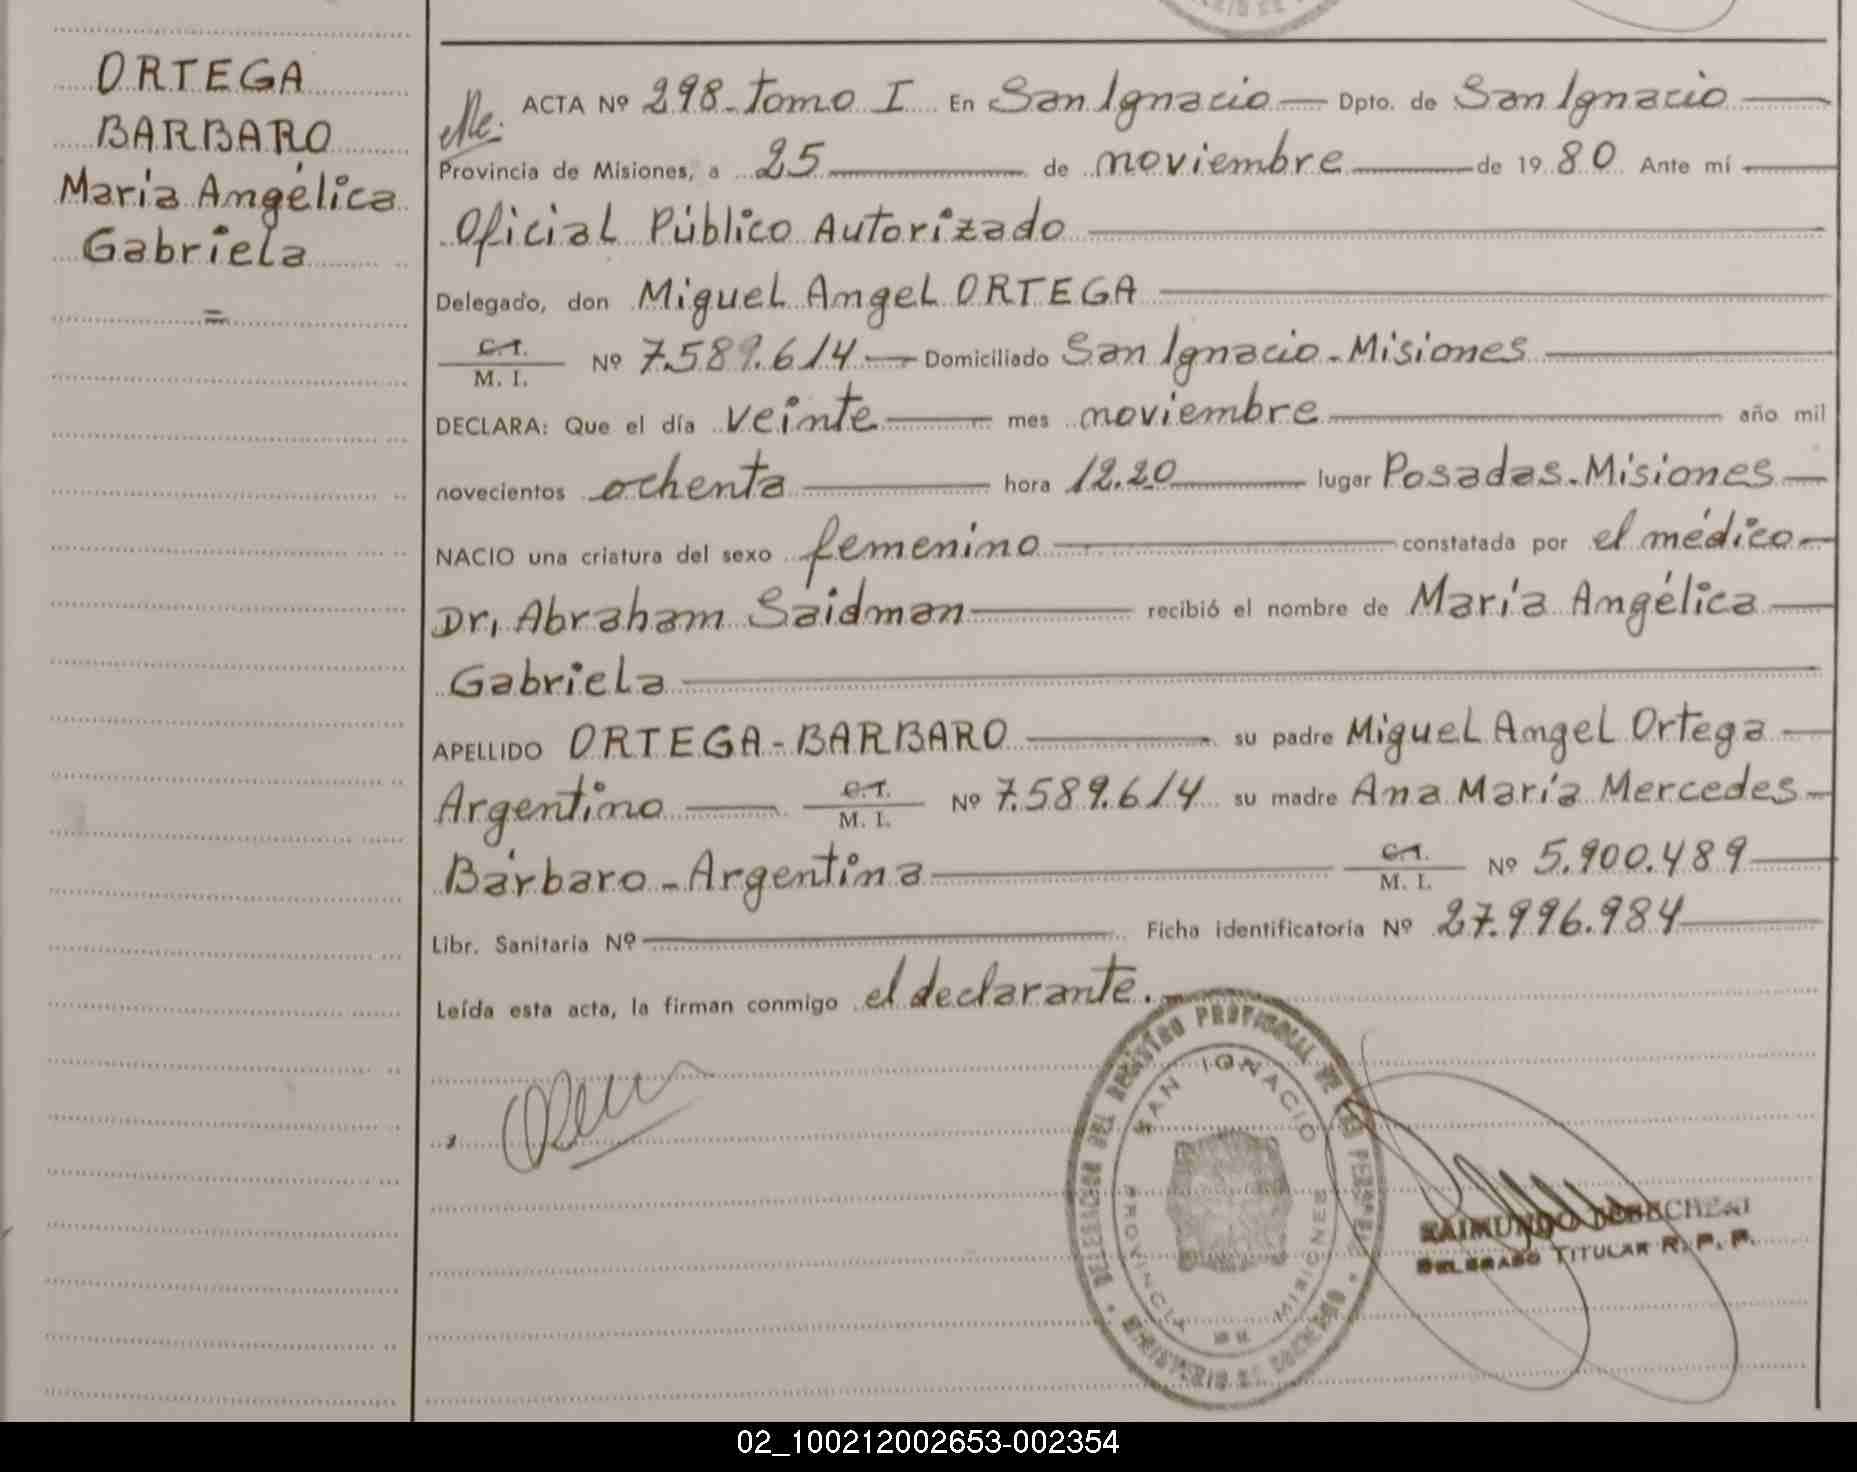 ORTEGA
BARBARO
María Angélica
Gabriela
=
ACTA Nº 298-Tomo I En San Ignacio Dpto. de San Ignacio
Provincia de Misiones, a 25 de noviembre de 1980 Ante mí
Oficial Público Autorizado
Delegado, don Miguel Angel ORTEGA
C.I.
M. I. Nº 7.589.614 Domiciliado San Ignacio-Misiones
DECLARA: Que el día veinte mes noviembre año mil
novecientos ochenta hora 12.20 lugar Posadas-Misiones
NACIO una criatura del sexo femenino constatada por el médico
Dr. Abraham Saidman recibió el nombre de María Angélica
Gabriela
APELLIDO ORTEGA-BARBARO su padre Miguel Angel Ortega
Argentino C.I. M. I. Nº 7.589.614 su madre Ana María Mercedes
Bárbaro-Argentina C.I. M. I. Nº 5.900.489
Libr. Sanitaria Nº Ficha identificatoria Nº 27.996.984
Leída esta acta, la firman conmigo el declarante.
DELEGACION DEL REGISTRO PROVINCIAL DE LAS PERSONAS
SAN IGNACIO
PROVINCIA DE MISIONES
MINISTERIO DE GOBIERNO
RAIMUNDO
DELEGADO TITULAR R. P. P.
02_100212002653-002354